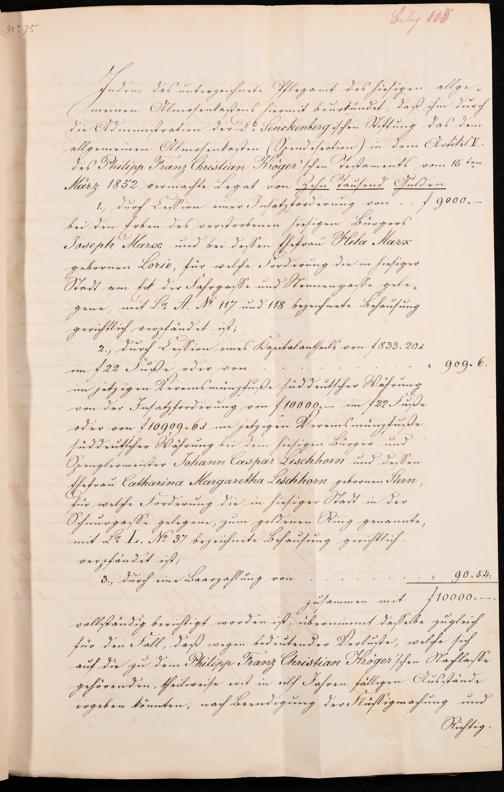 No 75
Beleg 108
Indem das unterzeichnete Pflegamt des hiesigen allge-
meinen Almosenkastens hiermit beurkundet, daß ihm durch
die Administration der Dr. Senckenberg'ischen Stiftung das dem
allgemeinen Almosenkasten (Spendsection) in dem Artikel V.
des Philipp Franz Christian Kröger'schen Testaments vom 15 ten
März 1852 vermachte Legat von Zehn Tausend Gulden
1., durch Cession einer Insatzforderung von . . f 9000.—
bei den Erben des verstorbenen hiesigen Bürgers
Joseph Marx und bei dessen Ehefrau Hela Marx
gebornen Lorie, für welche Forderung die in hiesiger
Stadt am Eck der Fahrgasse und Nonnengasse gele-
gene, mit Lr. A. No 117 und 118 bezeichnete Behausung
gerichtlich verpfändet ist;
2., durch Cession eines Kapitalantheils von f 833.20x
im f 22 Fuße oder von . . . . . . . " 909.6.
im jetzigen Vereinsmünzfuße süddeutscher Währung
von der Insatzforderung von f 10000.— im f 22 Fuße
oder von f 10909.6x im jetzigen Vereinsmünzfuße
süddeutscher Währung bei dem hiesigen Bürger und
Spenglermeister Johann Caspar Leschhorn und dessen
Ehefrau Catharina Margaretha Leschhorn gebornen Stern,
für welche Forderung die in hiesiger Stadt in der
Schnurgasse gelegene, zum goldenen Ring genannte,
mit Lr. L. No 37 bezeichnete Behausung gerichtlich
verpfändet ist;
3., durch eine Baarzahlung von . . . . . . . " 90.54.
zusammen mit f 10000.—
vollständig berichtigt worden ist, übernimmt dasselbe zugleich
für den Fall, daß wegen bedeutender Verluste, welche sich
auf die zu dem Philipp Franz Christian Kröger'schen Nachlasse
gehörenden, theilweise erst in elf Jahren fälligen Ausstände
ergeben könnten, nach Beendigung der Flüssigmachung und
Richtig-